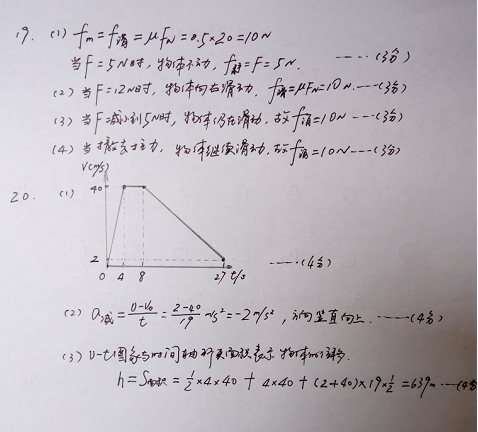 19. (1) fm = f滑 = μFN = 0.5×20 = 10N
当F=5N时, 物体不动, f静=F=5N. ----(3分)
(2) 当F=12N时, 物体向右滑动, f滑=μFN=10N. ---(3分)
(3) 当F减小到5N时, 物体仍在滑动, 故f滑=10N ---(3分)
(4) 当撤去拉力, 物体继续滑动, 故f滑=10N ---(3分)
V(m/s)
20. (1) 40
2
0 4 8 27 t/s
----(4分)
(2) a减 = (v-v0)/t = (2-40)/19 m/s² = -2m/s², 方向竖直向上. ----(4分)
(3) v-t图象与时间轴所夹面积表示物体的位移.
h = S面积 = 1/2×4×40 + 4×40 + (2+40)×19×1/2 = 639m ---(4分